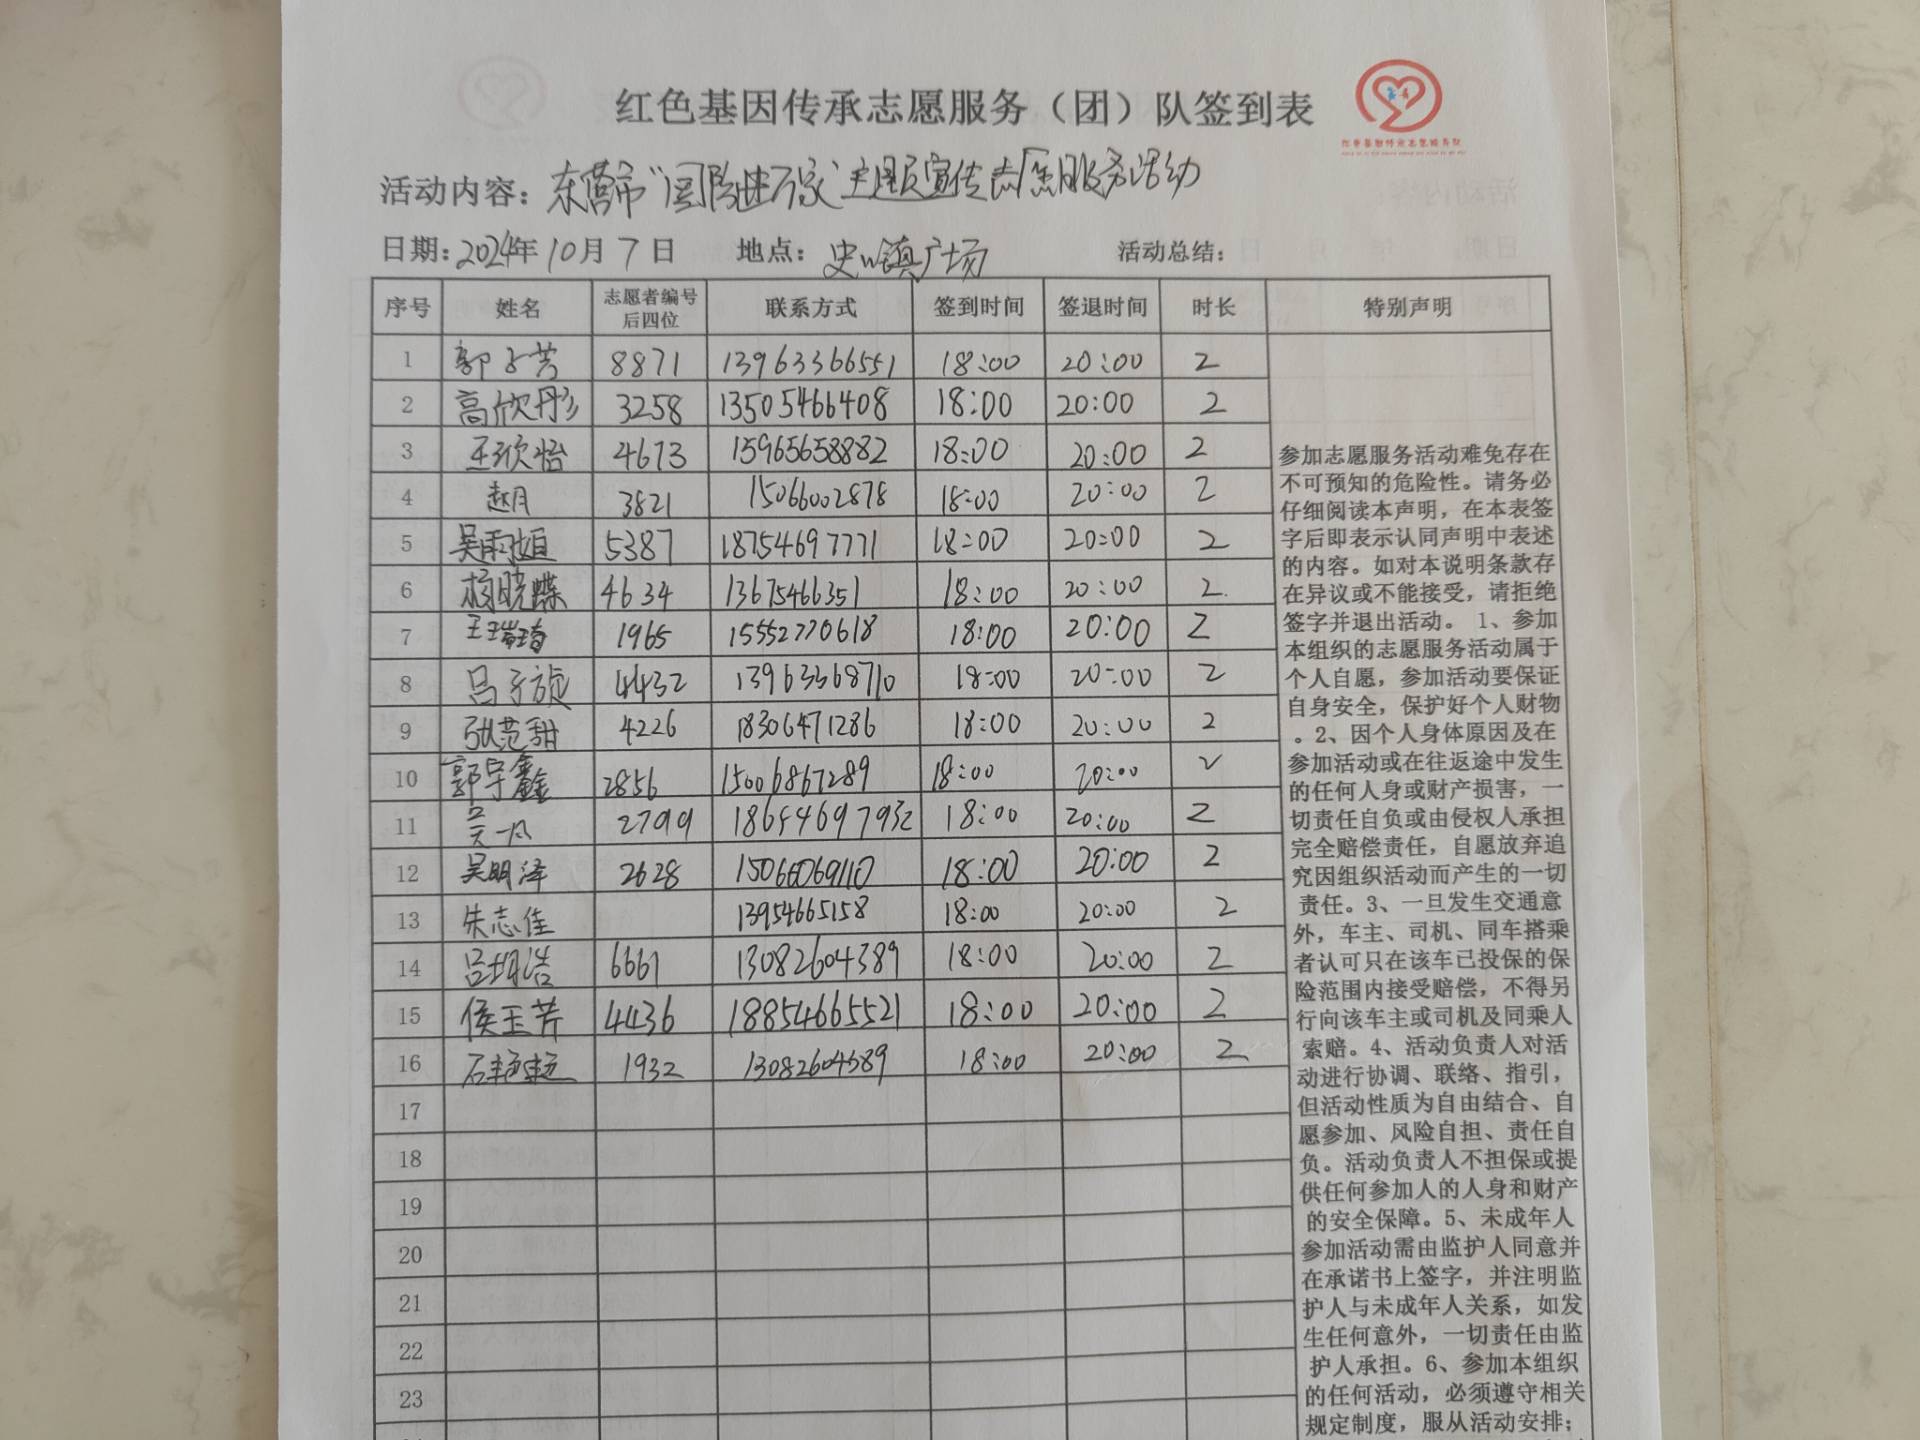 红色基因传承志愿服务（团）队签到表
红色基因传承志愿服务队
活动内容：东营市“国防进万家”主题宣传志愿服务活动
日期：2024年10月7日 地点：史口镇广场 活动总结：
序号 姓名 志愿者编号后四位 联系方式 签到时间 签退时间 时长 特别声明
1 郭子芳 8871 13963366551 18:00 20:00 2
2 高欣彤 3258 13505466408 18:00 20:00 2
3 王欣怡 4673 15965658882 18:00 20:00 2
4 赵月 3821 15066002878 18:00 20:00 2
5 吴雨桓 5387 18754697771 18:00 20:00 2
6 杨晓蝶 4634 13675466351 18:00 20:00 2
7 王 1965 15552770618 18:00 20:00 2
8 吕子旋 4432 13963368710 18:00 20:00 2
9 张范甜 4226 18306471286 18:00 20:00 2
10 郭宇鑫 2856 15006867289 18:00 20:00 2
11 2799 18654697932 18:00 20:00 2
12 吴明泽 2628 15066069110 18:00 20:00 2
13 朱志佳 13954665158 18:00 20:00 2
14 吕明浩 6661 13082604389 18:00 20:00 2
15 侯玉芳 4436 18854665521 18:00 20:00 2
16 石 1932 13082604389 18:00 20:00 2
17
18
19
20
21
22
23
参加志愿服务活动难免存在
不可预知的危险性。请务必
仔细阅读本声明，在本表签
字后即表示认同声明中表述
的内容。如对本说明条款存
在异议或不能接受，请拒绝
签字并退出活动。 1、参加
本组织的志愿服务活动属于
个人自愿，参加活动要保证
自身安全，保护好个人财物
。2、因个人身体原因及在
参加活动或在往返途中发生
的任何人身或财产损害，一
切责任自负或由侵权人承担
完全赔偿责任，自愿放弃追
究因组织活动而产生的一切
责任。3、一旦发生交通意
外，车主、司机、同车搭乘
者认可只在该车已投保的保
险范围内接受赔偿，不得另
行向该车主或司机及同乘人
索赔。4、活动负责人对活
动进行协调、联络、指引，
但活动性质为自由结合、自
愿参加、风险自担、责任自
负。活动负责人不担保或提
供任何参加人的人身和财产
的安全保障。5、未成年人
参加活动需由监护人同意并
在承诺书上签字，并注明监
护人与未成年人关系，如发
生任何意外，一切责任由监
护人承担。6、参加本组织
的任何活动，必须遵守相关
规定制度，服从活动安排；